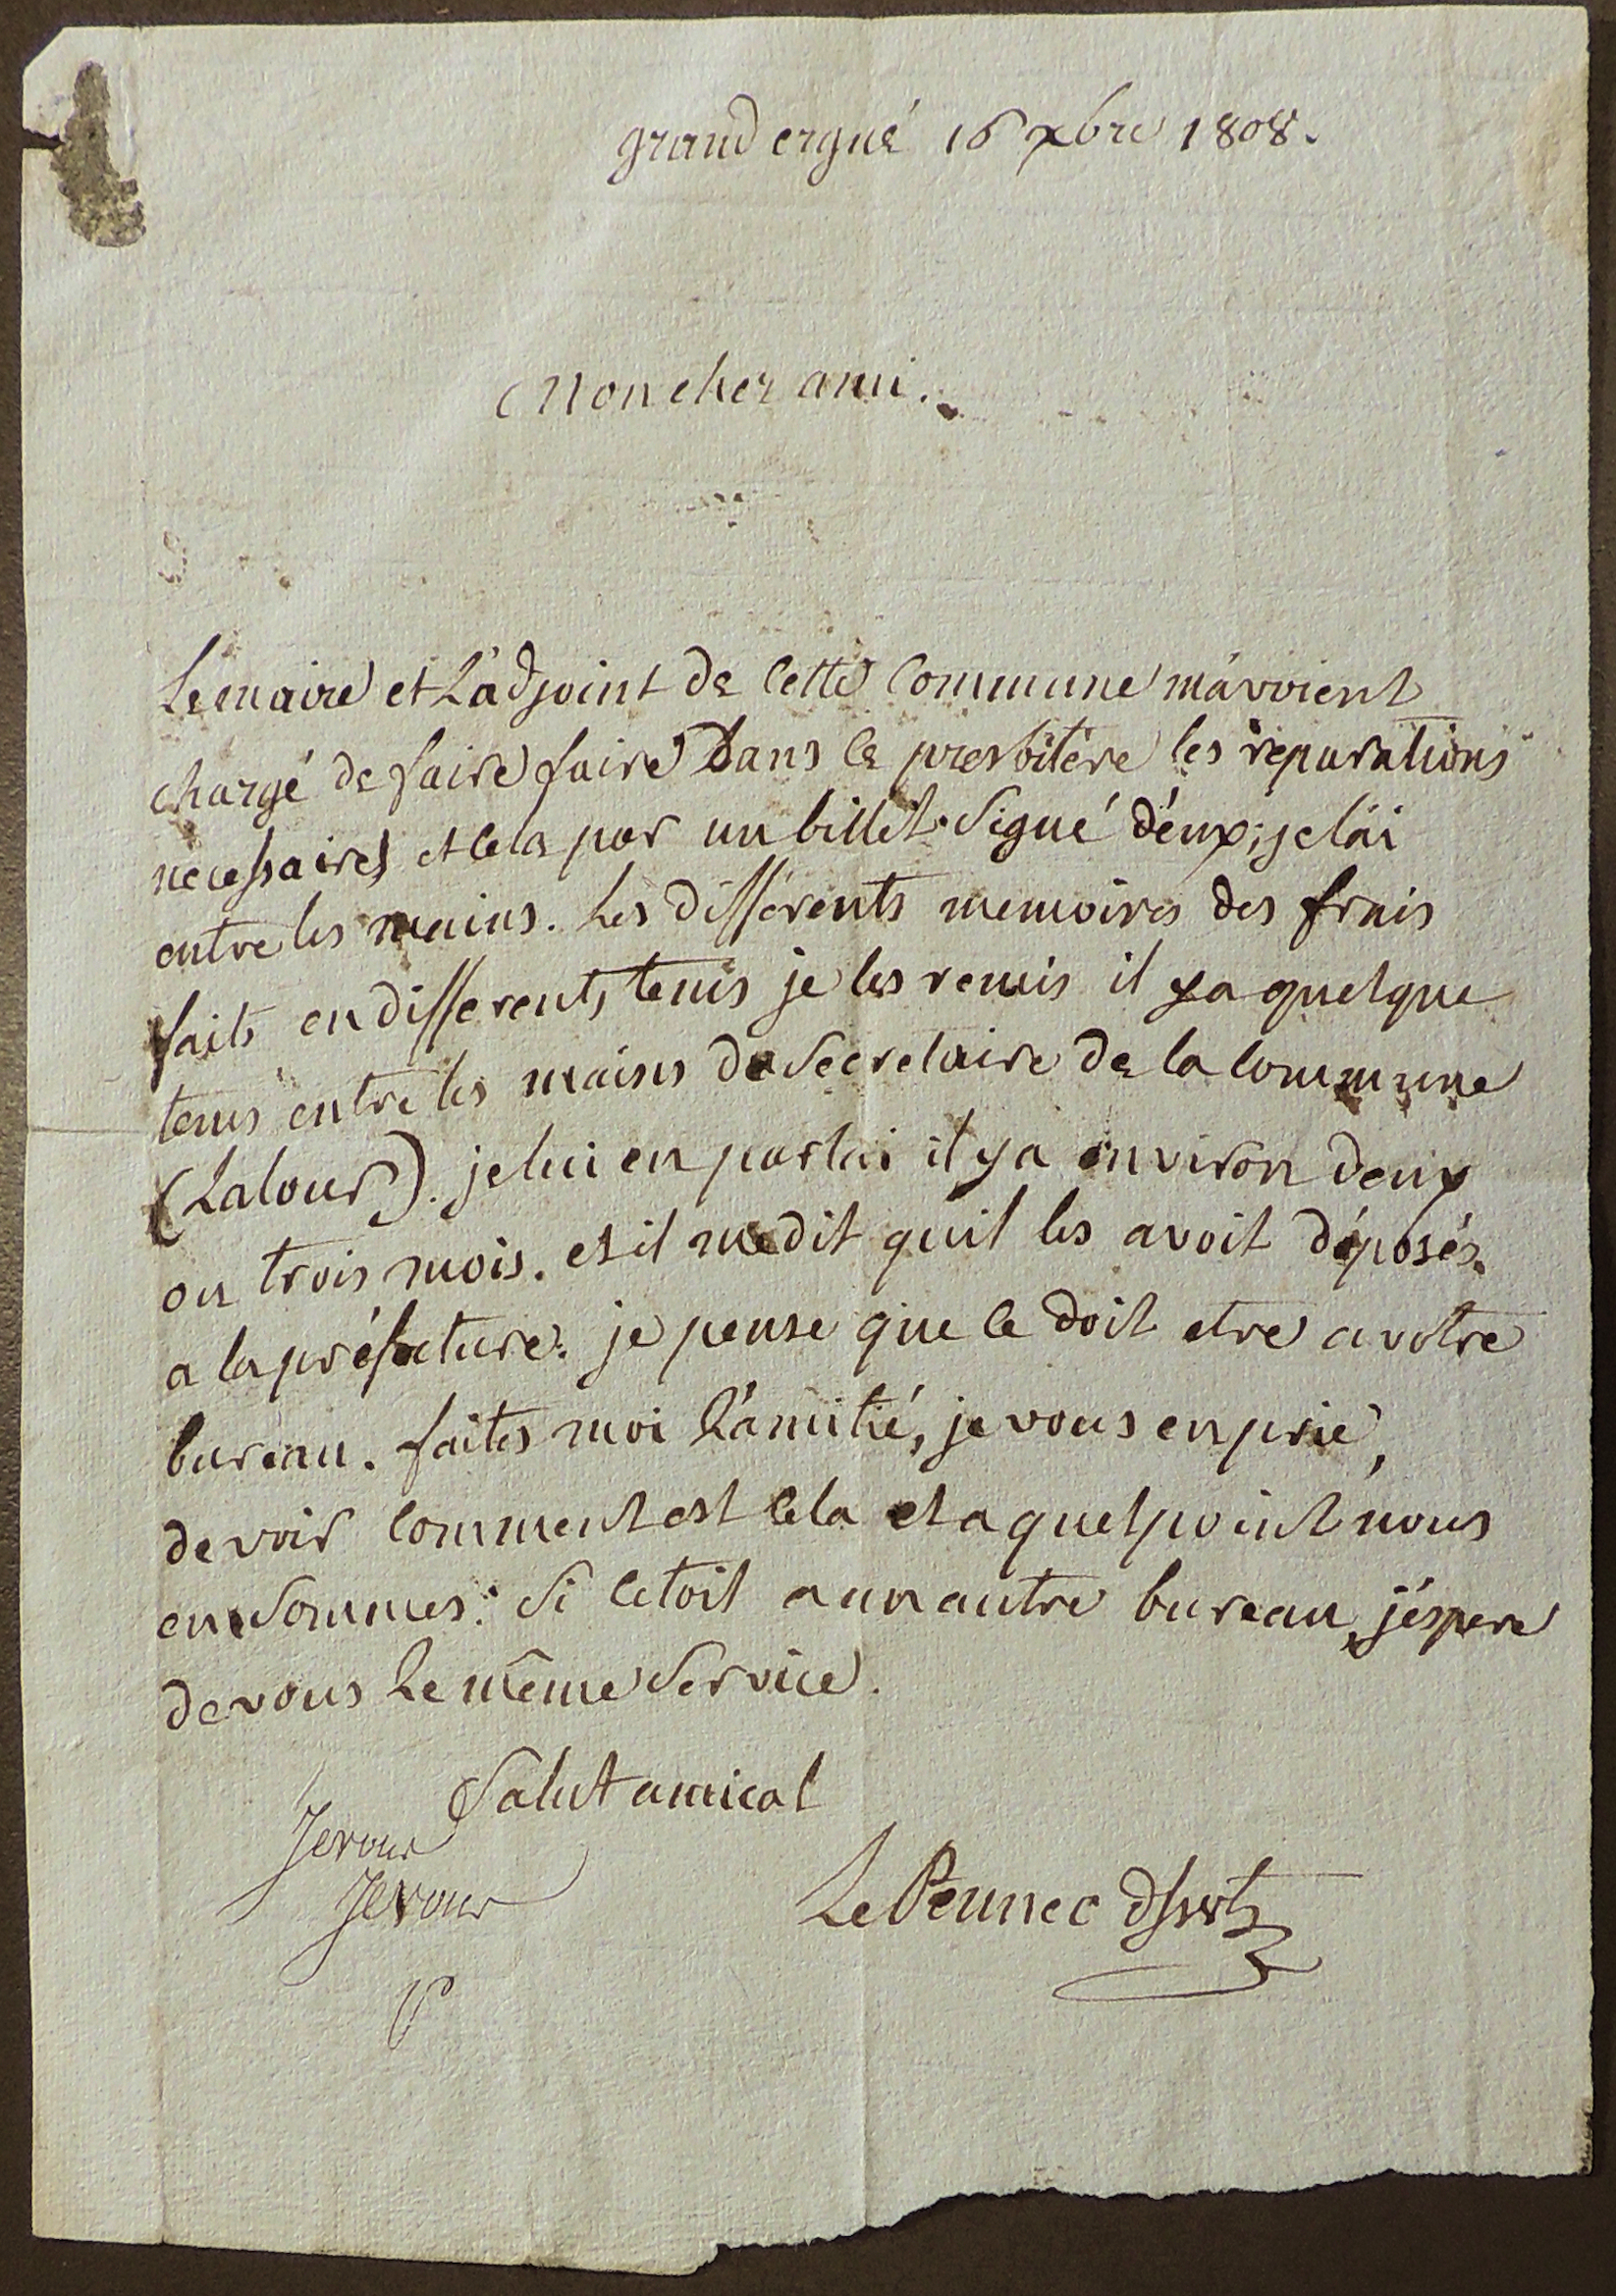 grand ergué 16 xbre 1808.
Mon cher ami.
Le maire et L'adjoint de cette commune m'avoient
chargé de faire faire dans le presbitère les réparations
necessaires et cela par un billet signé d'eux; je l'ai
entre les mains. Les différents memoires des frais
faits en differents tems je les remis il y a quelque
tems entre les mains du secretaire de la commune
(Lalour). je lui en parlai il y a environ deux
ou trois mois. et il me dit qu'il les avoit déposés
a la préfecture. je pense que ce doit etre a votre
bureau. faites moi l'amitié, je vous en prie,
de voir comment est cela et a quel point nous
en sommes: si cetoit a un autre bureau, j'éspere
de vous le même service.
Salut amical
Jerour
Jerour
Le Pennec dssert